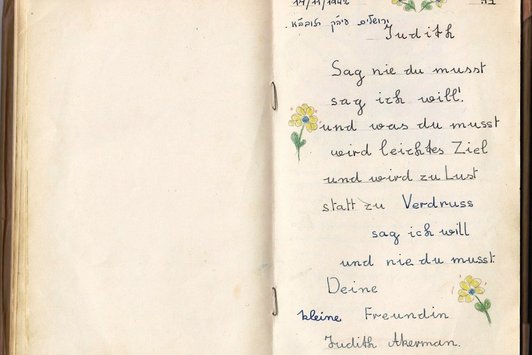 14/11/1942 ב"ה
ירושלים עיה"ק תובב"א.
Judith
Sag nie du musst
sag ich will!
und was du musst
wird leichtes Ziel
und wird zu Lust
statt zu Verdruss
sag ich will
und nie du musst.
Deine
kleine Freundin
Judith Akerman.